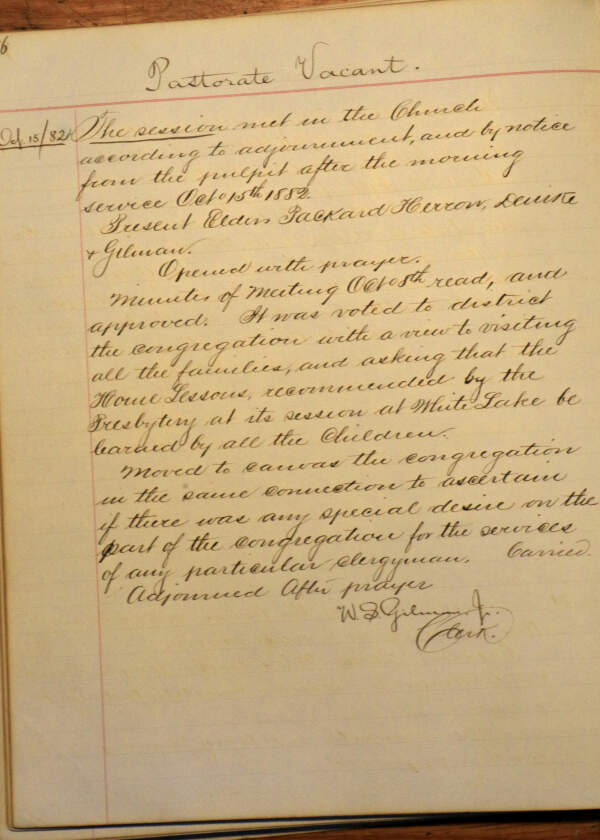 6
Pastorate Vacant.
Oct. 15/82
The session met in the Church
according to adjournment, and by notice
from the pulpit after the morning
service Oct 15th 1882.
Present Elders Packard Herron, Deniske
& Gilman.
Opened with prayer.
Minutes of Meeting Oct 8th read, and
approved. It was voted to district
the congregation with a view to visiting
all the families, and asking that the
Home Lessons, recommended by the
Presbytery at its session at White Lake be
learned by all the Children.
Moved to canvas the congregation
in the same connection to ascertain
if there was any special desire on the
part of the congregation for the services
of any particular clergyman. Carried.
Adjourned After prayer
W. S. Gilman Jr.
Clerk.